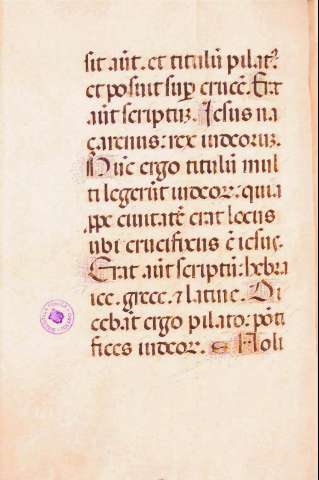 sit aūt. et titulū pilat⁹
et posuit sup̄ crucē. Erat
aūt scriptū. Jesus na
çarenus: rex iudeorū.
Hūc ergo titulū mul
ti legerūt iudeor: quia
ꝓpe ciuitatē erat locus
ubi crucifixus ē iesus.
Erat aūt scriptū: hebra
ice. grece. ⁊ latine. Di
cebāt ergo pilato: pōti
fices iudeor. Noli